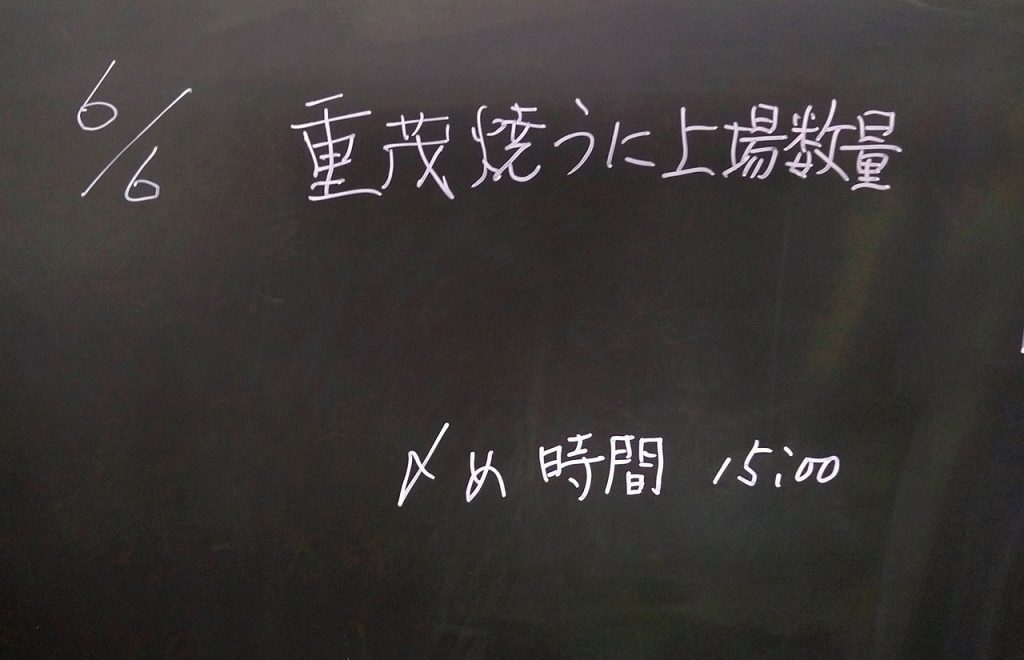 6/6 重茂焼うに上場数量
〆め時間 15:00